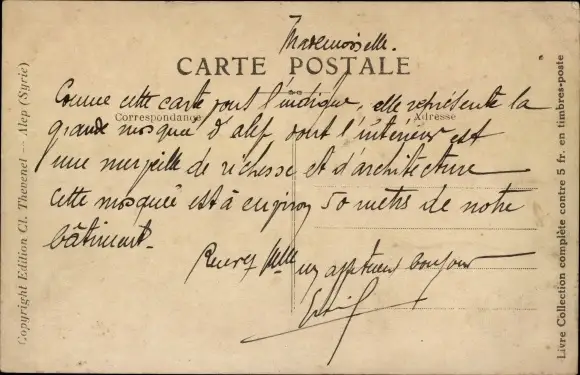 Mademoiselle.
CARTE POSTALE
Correspondance
Adresse
Comme cette carte vous l'indique, elle représente la
grande mosquée d'alep, dont l'intérieur est
une merveille de richesse et d'architecture
Cette mosquée est à environ 50 mètres de notre
bâtiment.
Recevez Melle un affectueux bonjour
Copyright Edition Cl. Thevenet — Alep (Syrie)
Livre Collection complète contre 5 fr. en timbres-poste